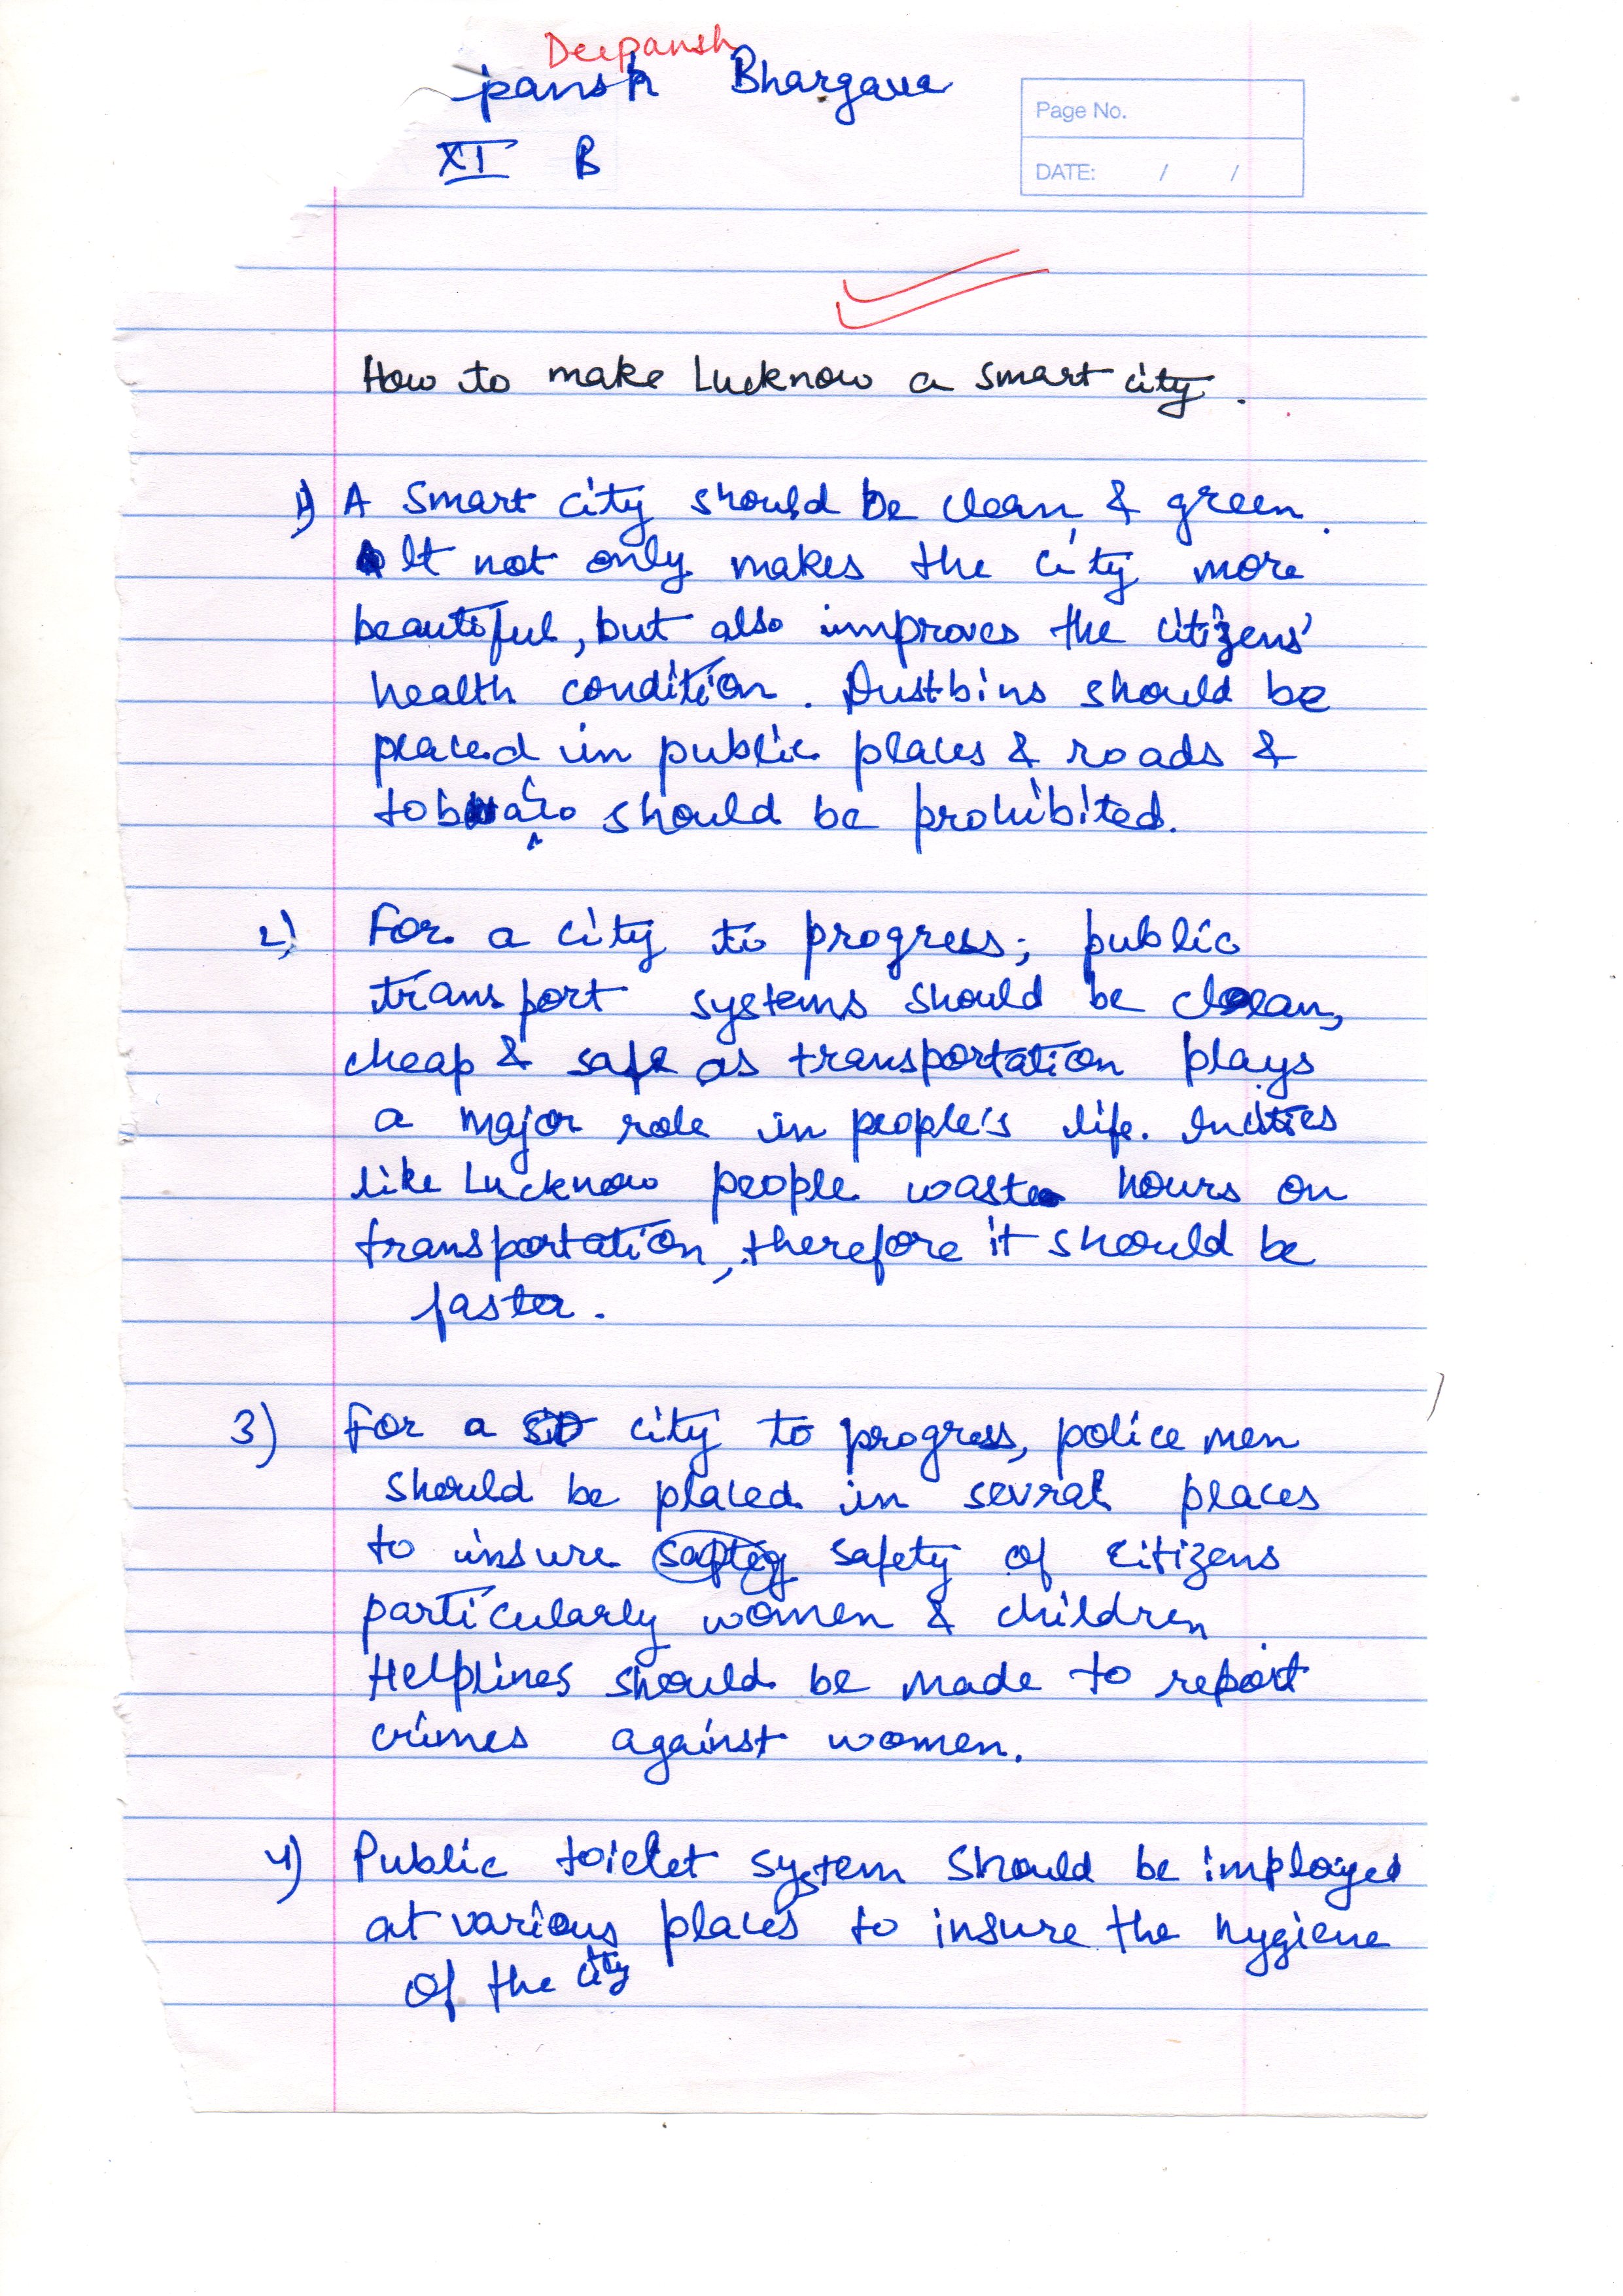 Deepansh
pansh Bhargava
XI B
Page No.
DATE: / /
How to make Lucknow a smart city.
1) A smart city should be clean & green.
It not only makes the city more
beautiful, but also improves the citizens'
health condition. Dustbins should be
placed in public places & roads &
tobacco should be prohibited.
2) For a city to progress; public
transport systems should be clean,
cheap & safe as transportation plays
a major role in people's life. In cities
like Lucknow people waste hours on
transportation, therefore it should be
faster.
3) For a city to progress, police men
should be placed in sevral places
to insure safety of citizens
particularly women & children
Helplines should be made to report
crimes against women.
4) Public toielet system should be imployed
at various places to insure the hygiene
of the city